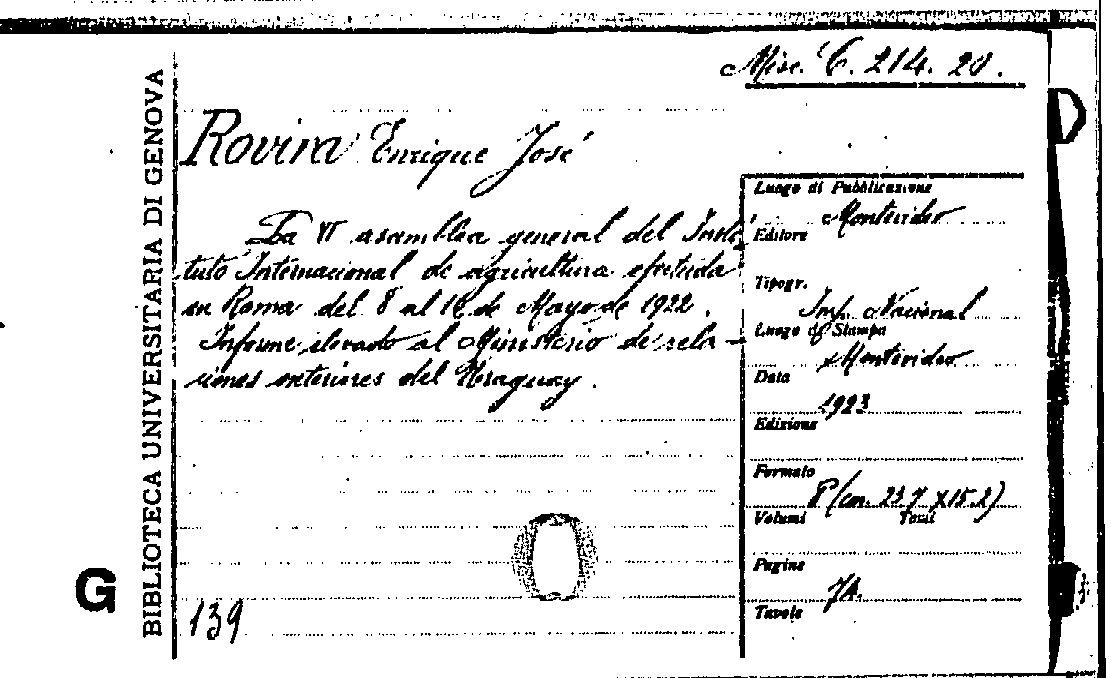 Misc. C. 214. 20.
BIBLIOTECA UNIVERSITARIA DI GENOVA
G
Rovira Enrique José
La VI asamblea general del Insti
tuto Internacional de agricultura efectuada
en Roma del 8 al 16 de Mayo de 1922.
Informe elevado al Ministerio de rela-
ciones exteriores del Uraguay.
139
Luogo di Pubblicazione
Montevideo
Editore
Tipogr.
Imp. Nacional
Luogo di Stampa
Montevideo
Data
1923
Edizione
Formato
8° (cm. 23.7 X 15.2)
Volumi Tomi
Pagine
74.
Tavole